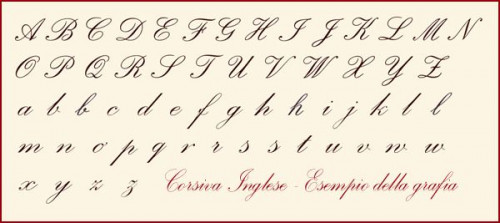 A B C D E F G H I J K L M N
O P Q R S T U V W X Y Z
a b b c d e f g h h i j k l l
m n o p q r r s s t u v w w
x y z z Corsiva Inglese - Esempio della grafia